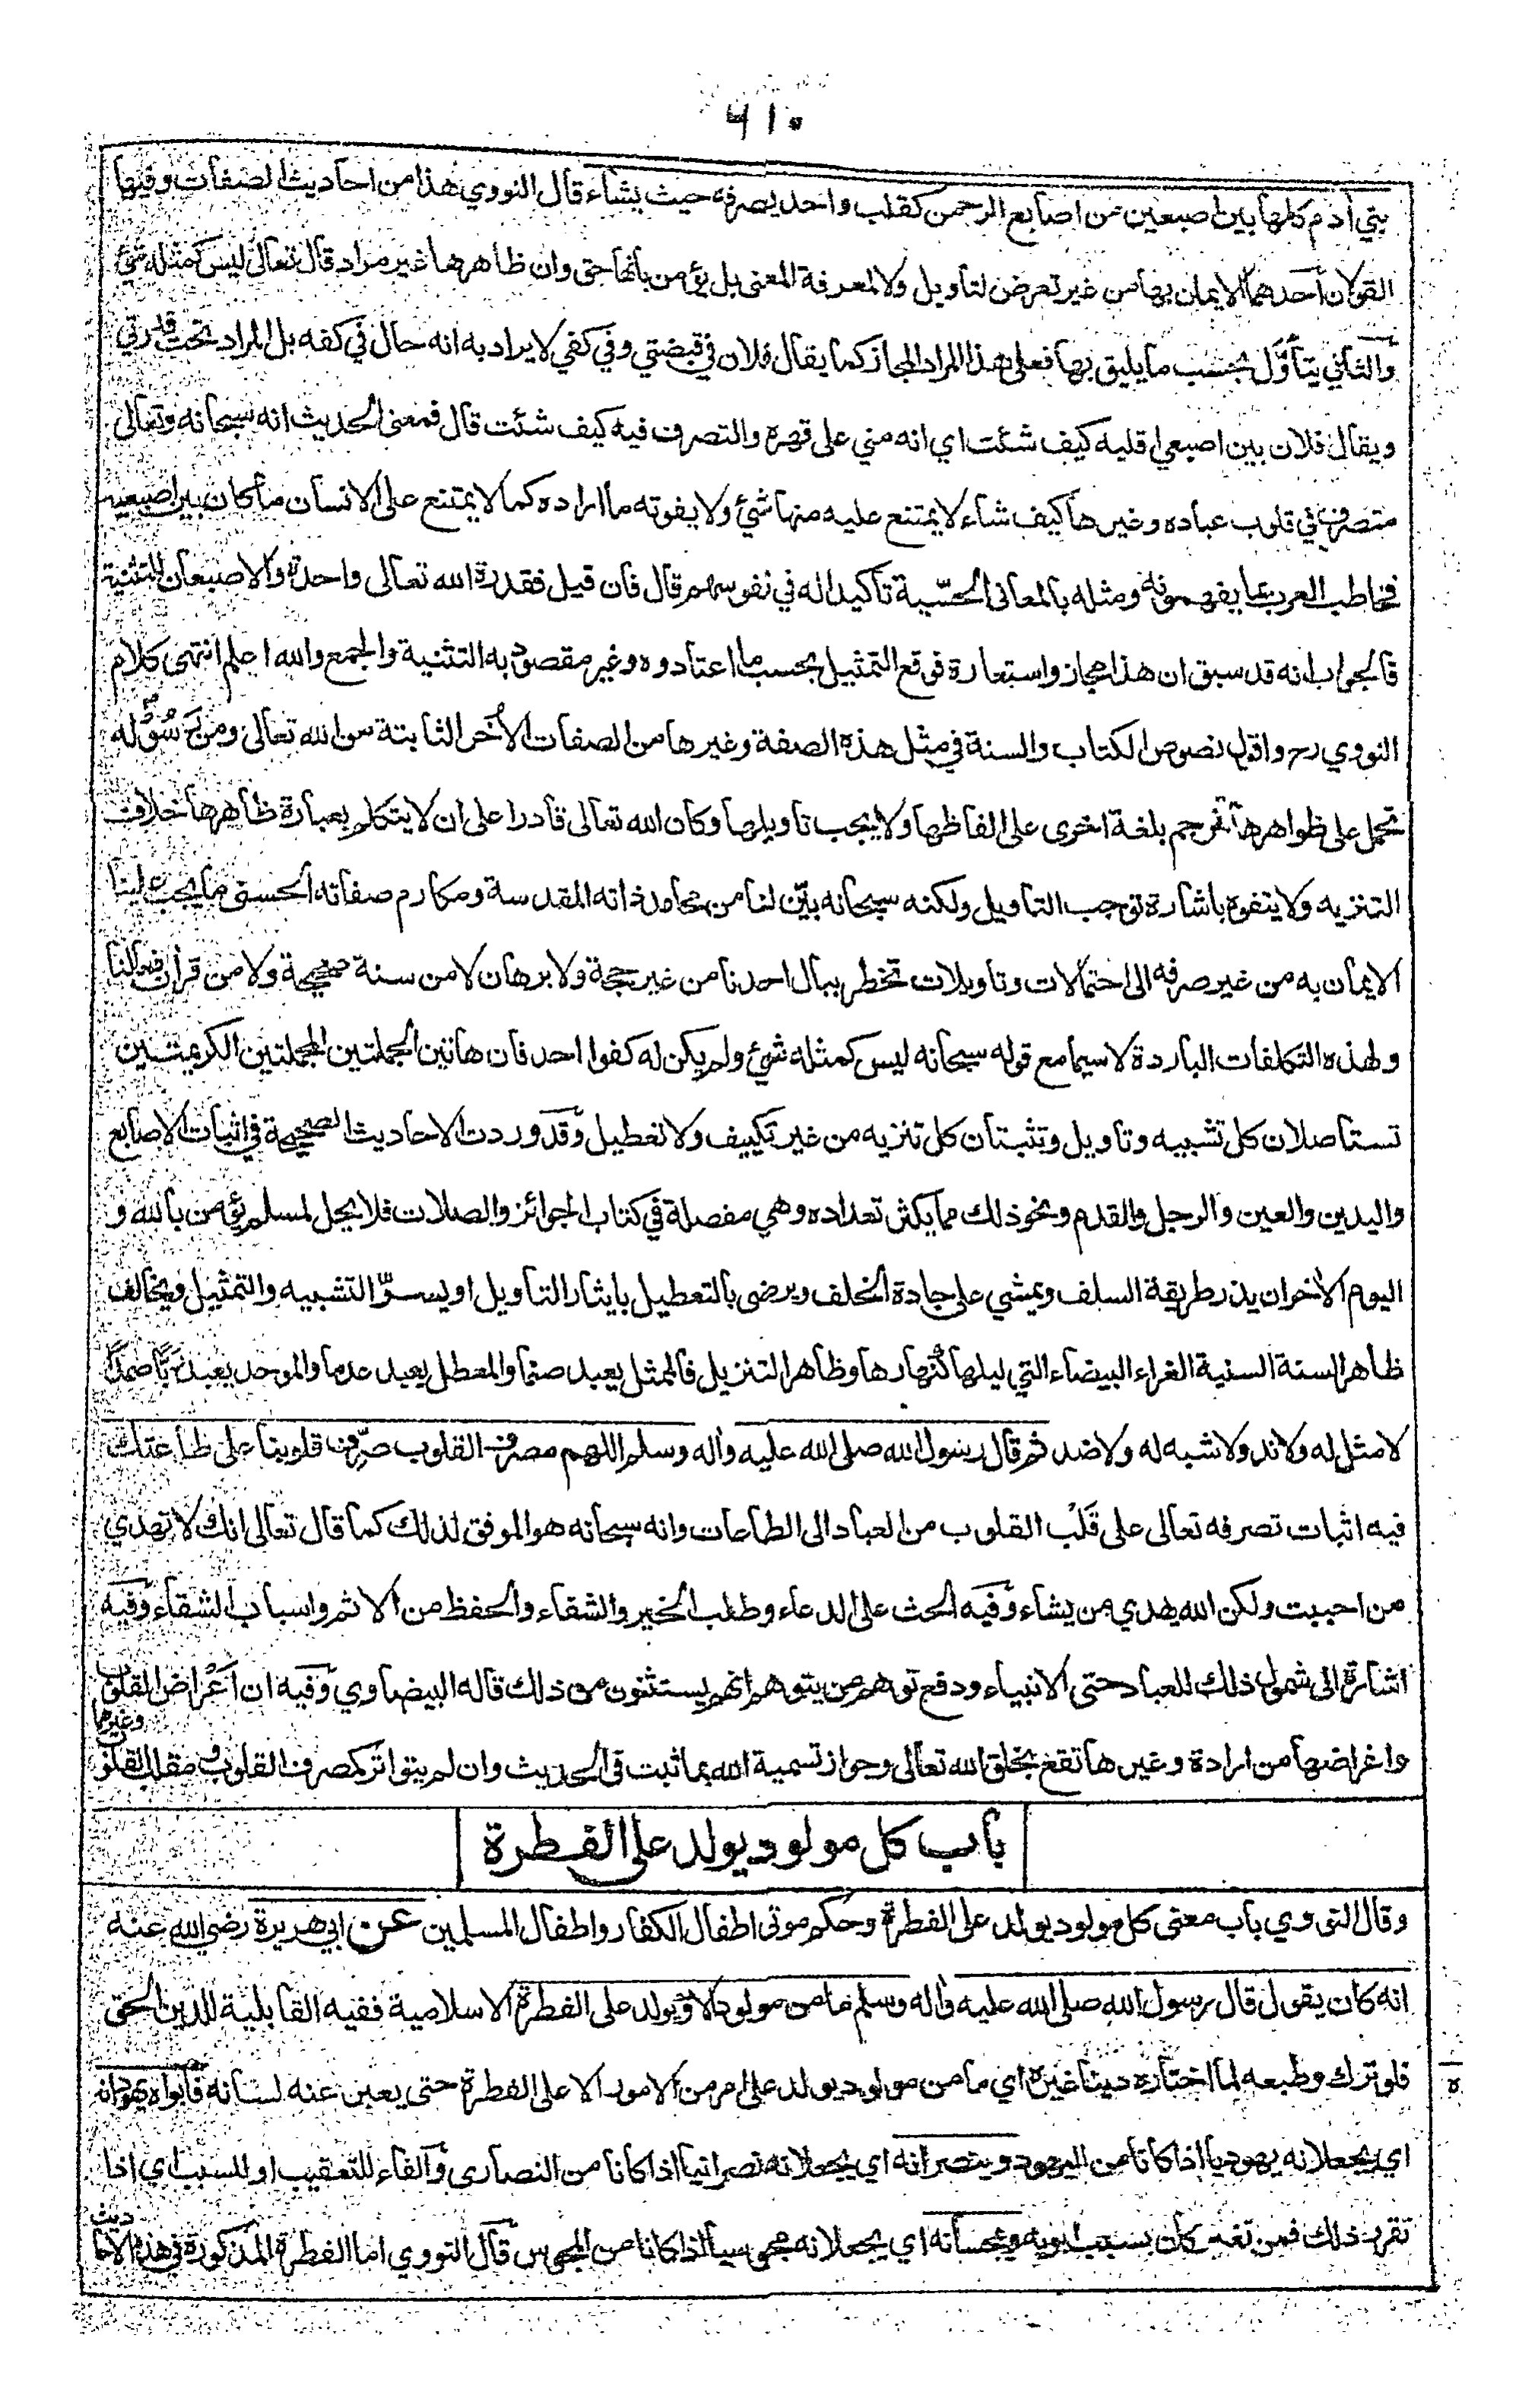 ٦١٠
بني آدم كلها بين اصبعين من اصابع الرحمن كقلب واحد يصرفه حيث يشاء قال النووي هذا من احاديث الصفات وفيها
القولان أحدهما الايمان بها من غير تعرض لتأويل ولا لمعرفة المعنى بل يؤمن بأنها حق وان ظاهرها غير مراد قال تعالى ليس كمثله شئ
والثاني يتأوّل بحسب ما يليق بها فعلى هذا المراد المجاز كما يقال فلان في قبضتي وفي كفي لا يراد به انه حال في كفه بل المراد تحت قدرتي
ويقال فلان بين اصبعي اقلبه كيف شئت اي انه مني على قهره والتصرف فيه كيف شئت قال فمعنى الحديث انه سبحانه وتعالى
متصرف في قلوب عباده وغيرها كيف شاء لا يمتنع عليه منها شئ ولا يفوته ما اراده كما لا يمتنع على الانسان ما كان بين اصبعيه
فخاطب العرب بما يفهمونه ومثله بالمعاني الحسّية تأكيدا له في نفوسهم قال فان قيل فقدرة الله تعالى واحدة والاصبعان للتثنية
فالجواب انه قد سبق ان هذا مجاز واستعارة فوقع التمثيل بحسب ما اعتادوه وغير مقصود به التثنية والجمع والله اعلم انتهى كلام
النووي رح واقول نصوص الكتاب والسنة في مثل هذه الصفة وغيرها من الصفات الأخر الثابتة من الله تعالى ومن رسوله
تحمل على ظواهرها تترجم بلغة اخرى على الفاظها ولا يجب تاويلها وكان الله تعالى قادرا على ان لا يتكلم بعبارة ظاهرها خلاف
التنزيه ولا يتفوه باشارة توجب التاويل ولكنه سبحانه بيّن لنا من محامد ذاته المقدسة ومكارم صفاته الحسنى ما يجب لنا
الايمان به من غير صرفه الى احتمالات وتاويلات تخطر ببال احدنا من غير حجة ولا برهان لا من سنة صحيحة ولا من قرآن فمالنا
ولهذه التكلفات الباردة لا سيما مع قوله سبحانه ليس كمثله شئ ولم يكن له كفوا احد فان هاتين الجملتين المجملتين الكريمتين
تستأصلان كل تشبيه وتاويل وتثبتان كل تنزيه من غير تكييف ولا تعطيل وقد وردت الاحاديث الصحيحة في اثبات الاصابع
واليدين والعين والرجل والقدم ونحو ذلك مما يكثر تعداده وهي مفصلة في كتاب الجوائز والصلات فلا يحل لمسلم يؤمن بالله و
اليوم الآخر ان يذر طريقة السلف ويمشي على جادة الخلف ويرضى بالتعطيل بايثار التأويل او يسوّ التشبيه والتمثيل ويخالف
ظاهر السنة السنية الغراء البيضاء التي ليلها كنهارها وظاهر التنزيل فالممثل يعبد صنما والمعطل يعبد عدما والموحد يعبد ربّا صمدا
لا مثل له ولا ند ولا شبه له ولا ضد ثم قال رسول الله صلى الله عليه وآله وسلم اللهم مصرف القلوب صرّف قلوبنا على طاعتك
فيه اثبات تصرفه تعالى على قَلْب القلوب من العباد الى الطاعات وانه سبحانه هو الموفق لذلك كما قال تعالى انك لا تهدي
من احببت ولكن الله يهدي من يشاء وفيه الحث على الدعاء وطلب الخير والشفاء والحفظ من الاثم واسباب الشقاء وفيه
اشارة الى شمول ذلك للعباد حتى الانبياء ودفع توهم من يتوهم انهم يستثنون من ذلك قاله البيضاوي وفيه ان اَعْراض القلوب
واغراضها من ارادة وغيرها تقع بخلق الله تعالى وجواز تسمية الله بما ثبت في الحديث وان لم يتواتر كمصرف القلوب ومقلب القلوب وغيرهما
باب كل مولود يولد على الفطرة
وقال النووي باب معنى كل مولود يولد على الفطرة وحكم موتى اطفال الكفار واطفال المسلمين عن ابي هريرة رضي الله عنه
انه كان يقول قال رسول الله صلى الله عليه وآله وسلم ما من مولود الا ويولد على الفطرة الاسلامية ففيه القابلية للدين الحق
فلو ترك وطبعه لما اختار دينا غيره اي ما من مولود يولد على امر من الامور الا على الفطرة حتى يعبر عنه لسانه فابواه يهودانه
اي يجعلانه يهوديا اذا كانا من اليهود وينصرانه اي يجعلانه نصرانيا اذا كانا من النصارى والفاء للتعقيب او للسبب اي اذا
تقرر ذلك فمن تغير كان بسبب ابويه ويمجسانه اي يجعلانه مجوسيا اذا كانا من المجوس قال النووي اما الفطرة المذكورة في هذه الاحاديث